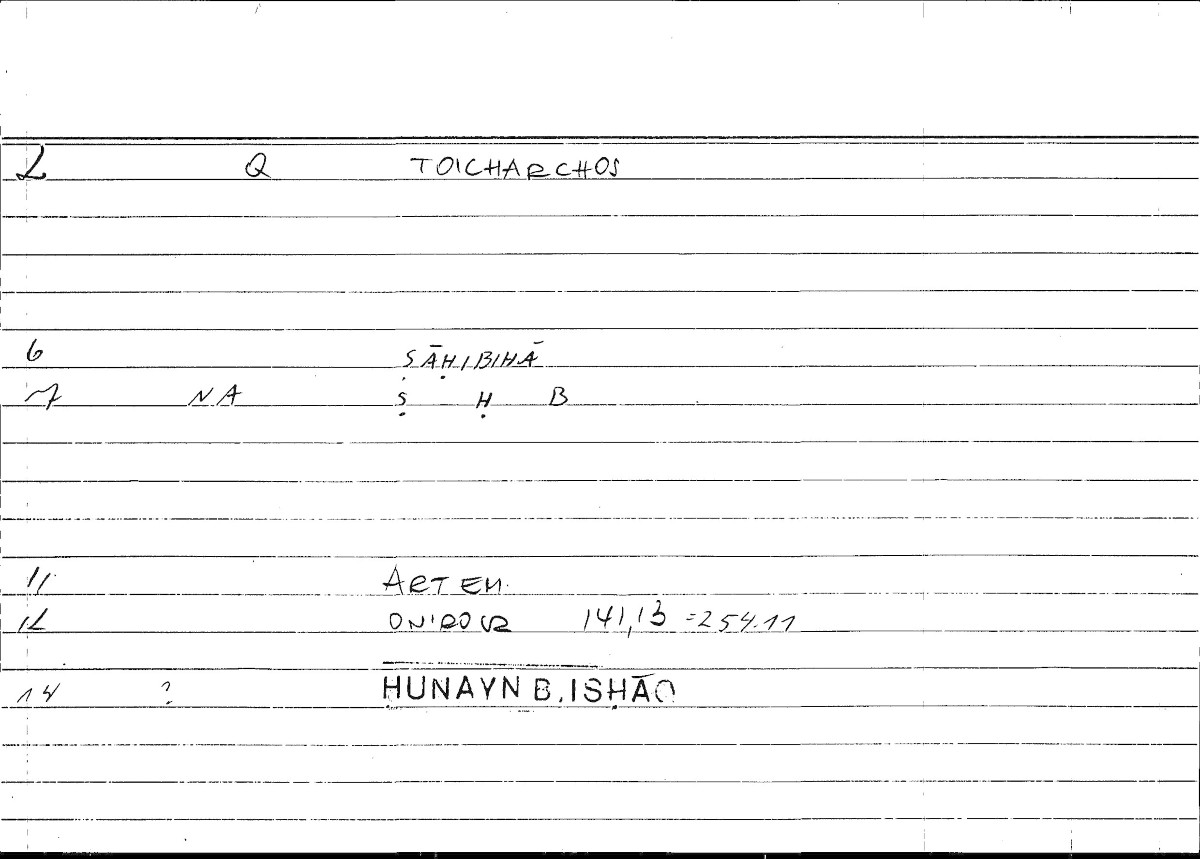 2 Q TOICHARCHOS
6 ṢĀḤIBIHĀ
7 NA Ṣ Ḥ B
11 ARTEM.
12 ONIROCR 141,13 =254.11
14 ? ḤUNAYN B. ISḤĀQ